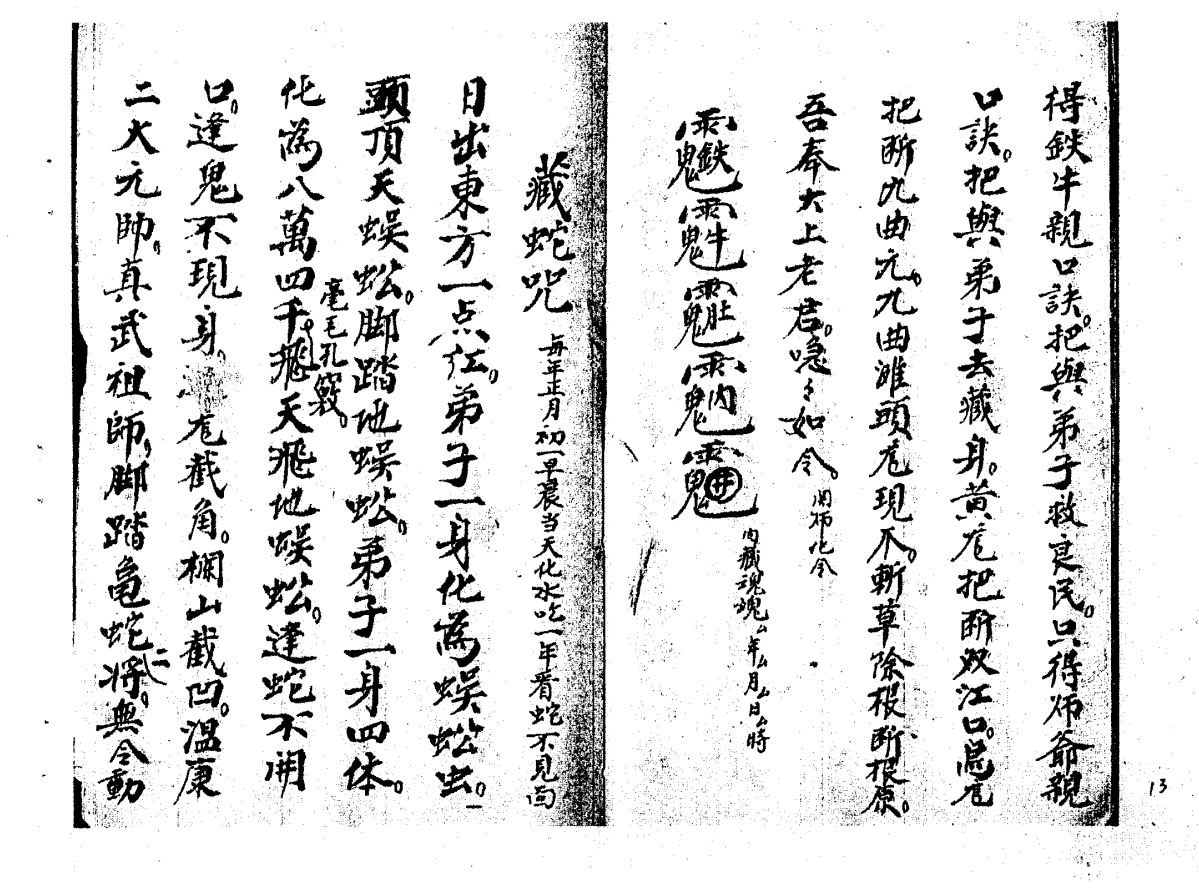 得鉄牛親口訣。把與弟子救良民。只得师爺親
口訣。把與弟子去藏身。黄尨把断双江口。尨
把断九曲亢。九曲滩頭尨現爪。斬草除根断根原。
吾奉太上老君。急〻如令。
用师化令
鉄
牛
肚
内
井
内藏魂魄厶年厶月厶日厶時
藏蛇咒
每年正月初一早晨当天化水吃一年看蛇不見面
日出東方一点红。弟子一身化為蜈蚣虫。
頭頂天蜈蚣。脚踏地蜈蚣。弟子一身四体。
毫毛孔竅。
化為八萬四千飛天飛地蜈蚣。逢蛇不開
口。逢鬼不現身。尨截角。欄山截凹。温康
二大元帥。真武祖師。脚踏龟蛇二将。無令動
13